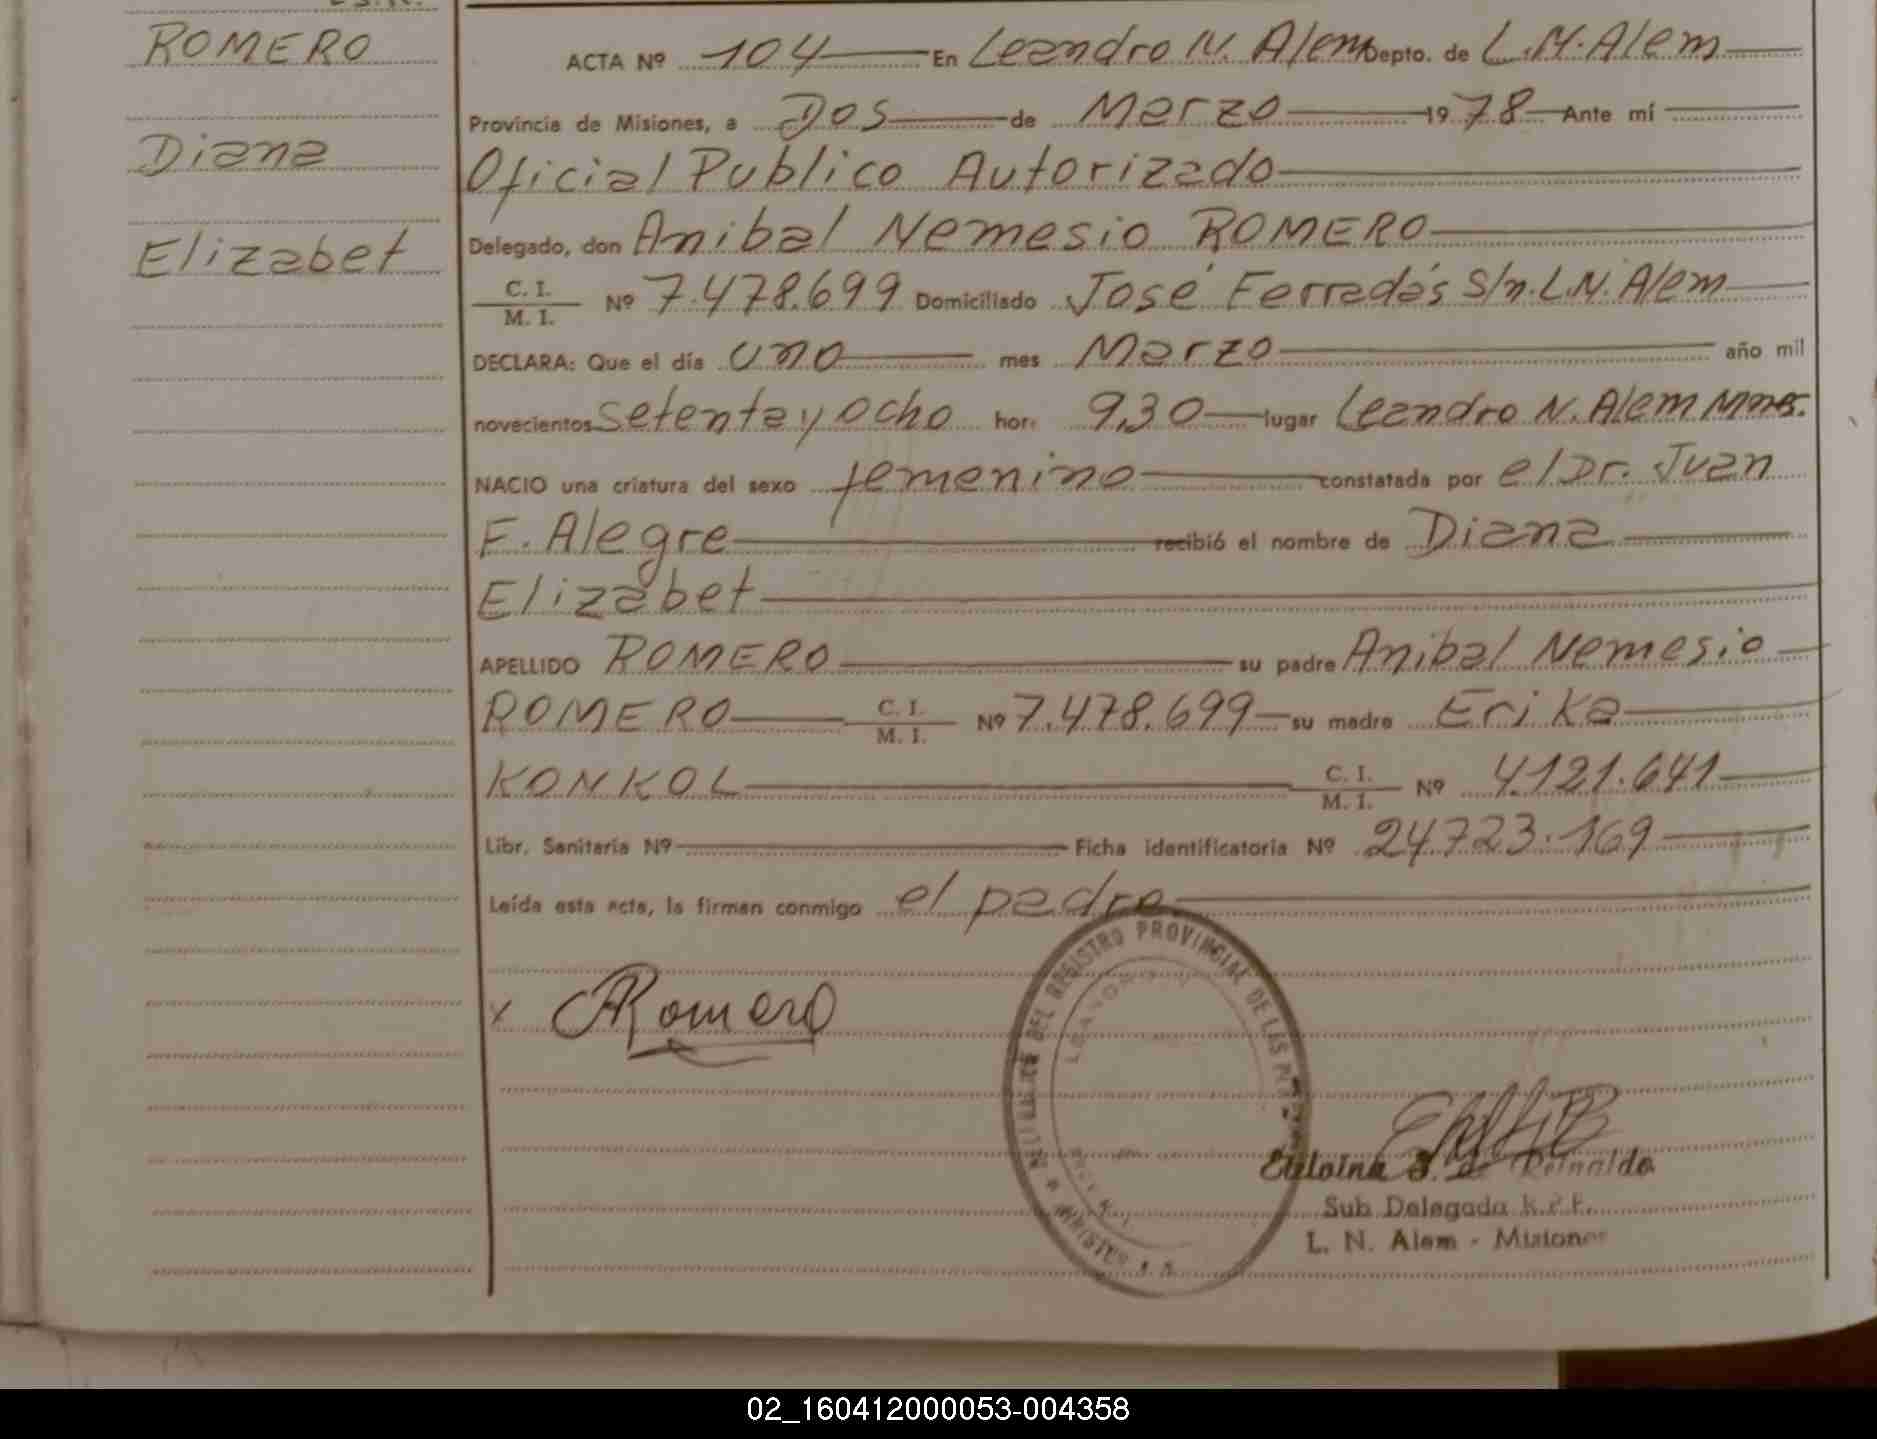 ROMERO
Diana
Elizabet
ACTA Nº 104 En Leandro N. Alem Depto. de L.N.Alem
Provincia de Misiones, a Dos de Marzo 1978 Ante mí
Oficial Publico Autorizado
Delegado, don Anibal Nemesio ROMERO
C. I.
M. I. Nº 7.478.699 Domiciliado José Ferradás S/n. L.N. Alem
DECLARA: Que el día uno mes Marzo año mil
novecientos setenta y ocho hora 9,30 lugar Leandro N. Alem Mnes.
NACIO una criatura del sexo femenino constatada por el Dr. Juan
F. Alegre recibió el nombre de Diana
Elizabet
APELLIDO ROMERO su padre Anibal Nemesio
ROMERO C. I. M. I. Nº 7.478.699 su madre Erika
KONKOL C. I. M. I. Nº 4.121.641
Libr. Sanitaria Nº Ficha identificatoria Nº 24723.169
Leída esta acta, la firman conmigo el padre
x ARomero
DEL REGISTRO PROVINCIAL DE LAS
de Reinaldo
Sub Delegada R.P.P.
L. N. Alem - Misiones
02_160412000053-004358